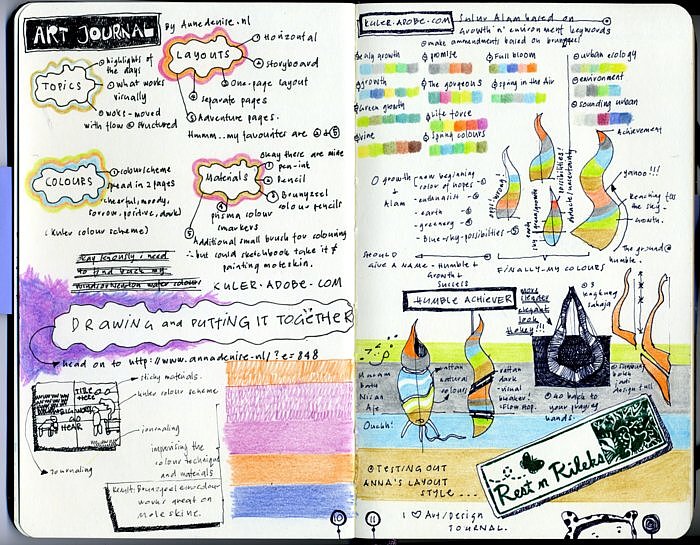 ART JOURNAL
By Annedenise.nl
TOPICS
highlights of
the days
what works
visually
works - moved
with flow @ structured
LAYOUTS
① Horizontal
② Storyboard
③ One-page layout
④ separate pages
⑤ Adventure pages.
Hmmm.. my favourites are ④ & ⑤
COLOURS
① colourscheme
spread in 2 pages
cheerful, moody,
sorrow, positive, dark)
(kuler colour scheme)
Materials
Okay there are mine
pen-ink
② Pencil
③ Brunyzeel
colour pencils
④ prisma colour
markers
⑤
Additional small brush for colouring
but could sketchbook take it &
painting moleskin.
KULER.ADOBE.COM
DRAWING and PUTTING IT TOGETHER
head on to http://www.annadenise.nl/?e=848
sticky materials.
kuler colour scheme
journaling
improvising the
colour technique
and materials
Journaling
Result: Brunyzeel colour
works great on
moleskine.
10
KULER.ADOBE.COM
Alam based on
growth 'n' environment keywords
make ammendments based on brunyzeel
growth
promise
Full bloom
urban ecology
growth
The gorgeous
spring in the air
environment
Green growth
Life force
sounding urban
vine
Spring colours
Achievement
growth
+
Alam
new beginning
color of hopes
- enthusiastic
- earth
- greenery
- blue-sky-possibilities
oops! wrong!
possibilities!
earth
sky
green/growth
yahoo!!!
Reaching for
the sky -
Growth.
The ground @
humble.
SHOULD
GIVE A NAME - HUMBLE &
GROWTH &
SUCCESS
FINALLY - MY COLOURS
HUMBLE ACHIEVER
more
slender
elegant
look
Okey!!!
Macam
batu
Nisan
Aje
Ouchh!
rattan
natural
colour
rattan
dark
- visual
breaker!
- Slow Mop.
go back to
your praying
hands.
3
lengkung
sahaja
boleh
jadi
design full
Rest n Rileks
TESTING OUT
ANNA'S LAYOUT
STYLE ...
11
I ♡ Art/Design
JOURNAL.